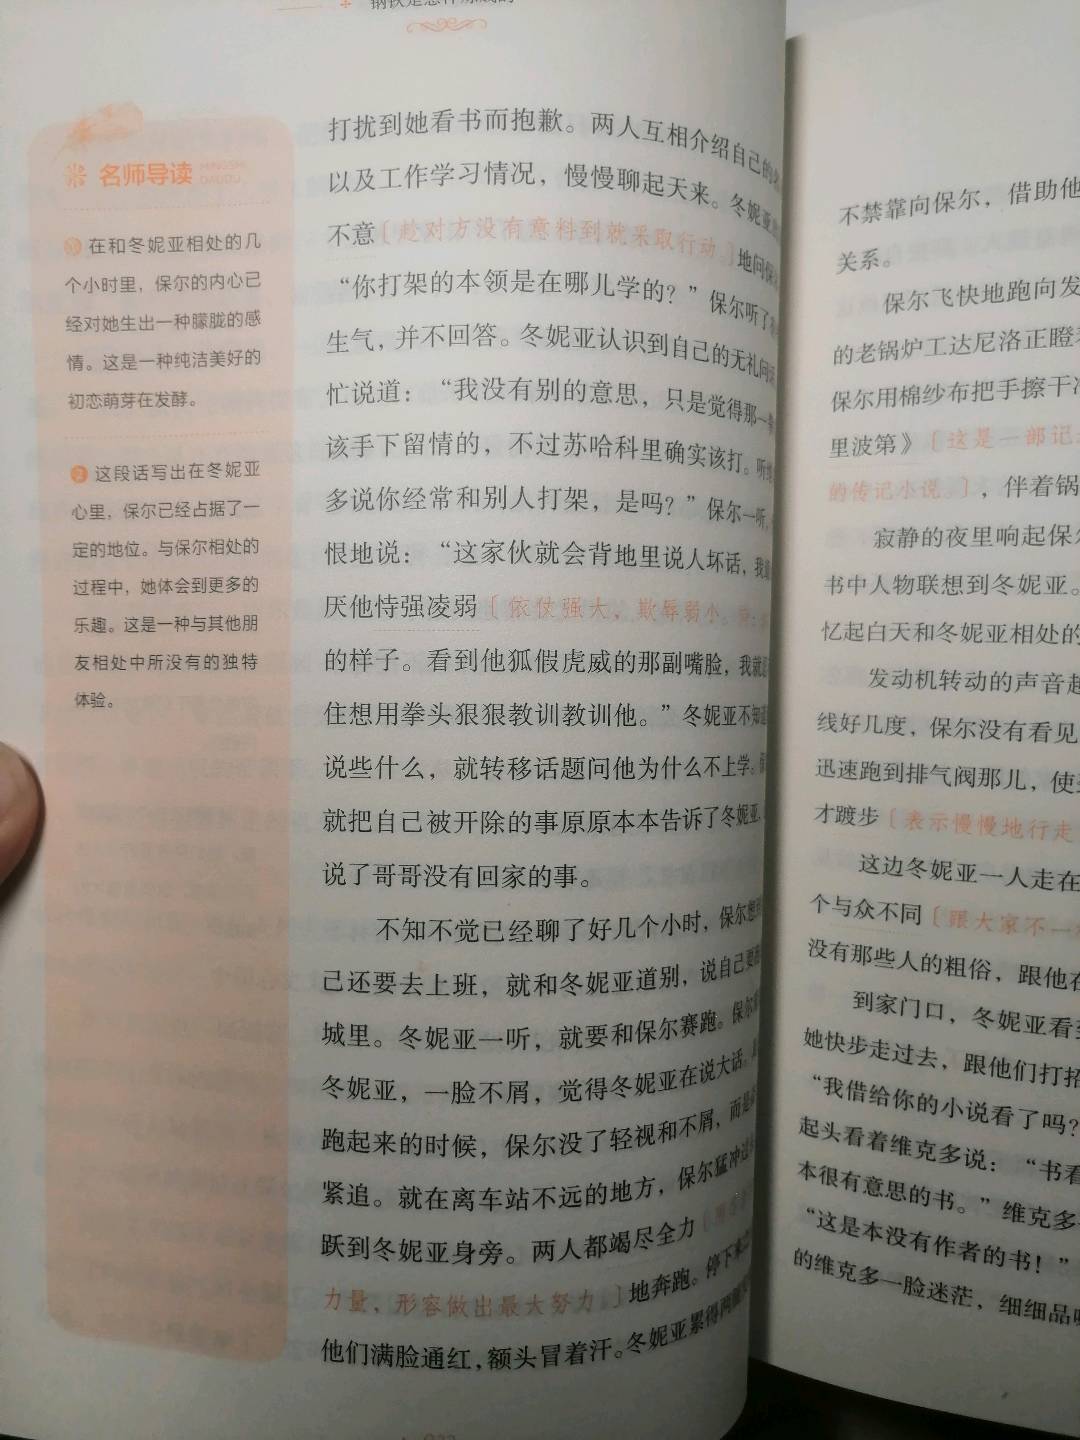 名师导读
MINGSHI
DAODU
在和冬妮亚相处的几
个小时里，保尔的内心已
经对她生出一种朦胧的感
情。这是一种纯洁美好的
初恋萌芽在发酵。
2 这段话写出在冬妮亚
心里，保尔已经占据了一
定的地位。与保尔相处的
过程中，她体会到更多的
乐趣。这是一种与其他朋
友相处中所没有的独特
体验。
打扰到她看书而抱歉。两人互相介绍自己的
以及工作学习情况，慢慢聊起天来。冬妮亚
不意［趁对方没有意料到就采取行动。］地问保
“你打架的本领是在哪儿学的？”保尔听了
生气，并不回答。冬妮亚认识到自己的无礼
忙说道：“我没有别的意思，只是觉得那一
该手下留情的，不过苏哈科里确实该打。听
多说你经常和别人打架，是吗？”保尔一听，
恨地说：“这家伙就会背地里说人坏话，我
厌他恃强凌弱［依仗强大，欺辱弱小。
的样子。看到他狐假虎威的那副嘴脸，我就
住想用拳头狠狠教训教训他。”冬妮亚不知道
说些什么，就转移话题问他为什么不上学。
就把自己被开除的事原原本本告诉了冬妮亚，
说了哥哥没有回家的事。
不知不觉已经聊了好几个小时，保尔想
己还要去上班，就和冬妮亚道别，说自己要
城里。冬妮亚一听，就要和保尔赛跑。保尔
冬妮亚，一脸不屑，觉得冬妮亚在说大话。
跑起来的时候，保尔没了轻视和不屑，而是
紧追。就在离车站不远的地方，保尔猛冲过
跃到冬妮亚身旁。两人都竭尽全力
力量，形容做出最大努力。］地奔跑。停下来
他们满脸通红，额头冒着汗。冬妮亚累得两
不禁靠向保尔，借助他
关系。
保尔飞快地跑向发
的老锅炉工达尼洛正瞪
保尔用棉纱布把手擦干
里波第》［这是一部记
的传记小说。］，伴着锅
寂静的夜里响起保
书中人物联想到冬妮亚。
忆起白天和冬妮亚相处的
发动机转动的声音越
线好几度，保尔没有看见
迅速跑到排气阀那儿，使
才踱步［表示慢慢地行走
这边冬妮亚一人走在
个与众不同［跟大家不一
没有那些人的粗俗，跟他在
到家门口，冬妮亚看
她快步走过去，跟他们打招
“我借给你的小说看了吗？
起头看着维克多说：“书看
本很有意思的书。”维克多
“这是本没有作者的书！”
的维克多一脸迷茫，细细品